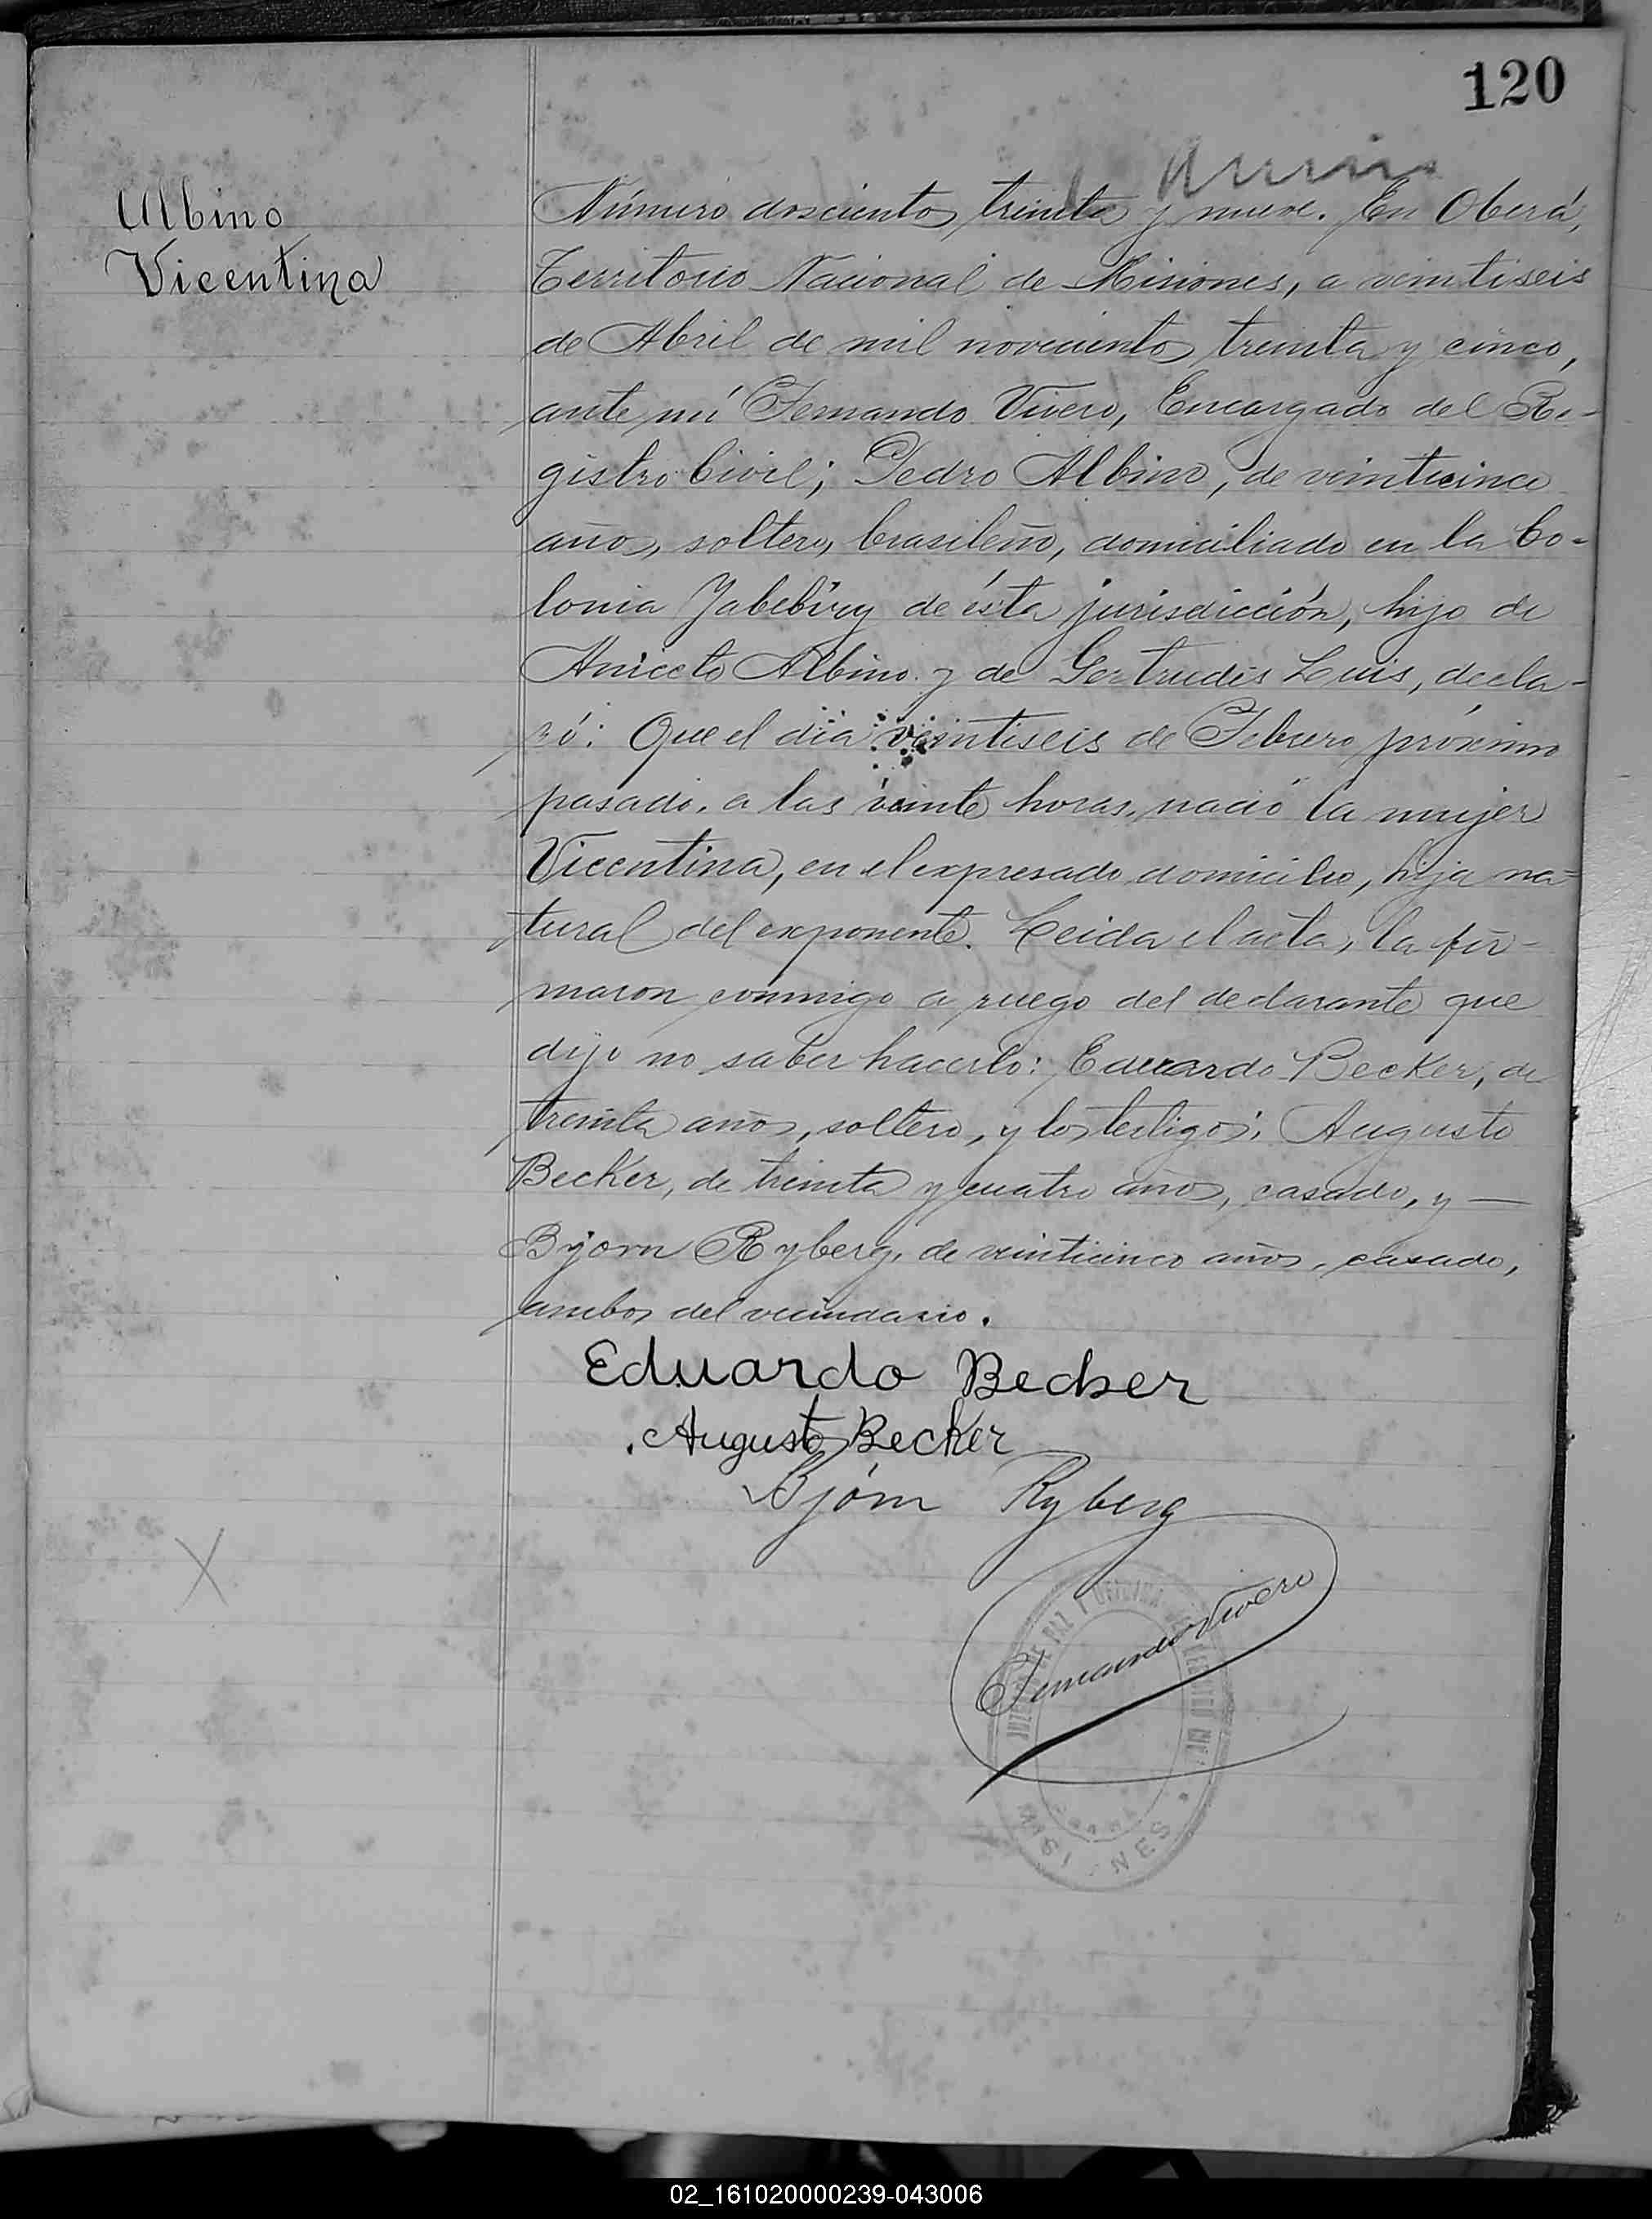 120
Albino
Vicentina
Número doscientos treinta y nueve. En Oberá,
Territorio Nacional de Misiones, a veintiseis
de Abril de mil novecientos treinta y cinco,
ante mí Fernando Vivero, Encargado del Re-
gistro Civil; Pedro Albino, de veinticinco
años, soltero, brasileño, domiciliado en la Co-
lonia Yabebiry de ésta jurisdicción, hijo de
Aniceto Albino y de Gertrudis Luis, decla-
ró: Que el día veintiseis de Febrero próximo
pasado, a las veinte horas, nació la mujer
Vicentina, en el expresado domicilio, hija na-
tural del exponente. Leida el acta, la fir-
maron conmigo a ruego del declarante que
dijo no saber hacerlo: Eduardo Becker, de
treinta años, soltero, y los testigos: Augusto
Becker, de treinta y cuatro años, casado, y —
Bjorn Ryberg, de veinticinco años, casado,
ambos del vecindario.
Eduardo Becker
Augusto Becker
Bjórn Ryberg
Fernando Vivero
MISIONES
02_161020000239-043006